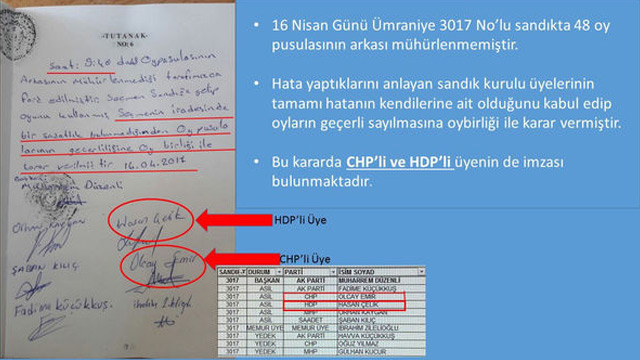 TUTANAK
NO: 6
Saat: 8:40 daki Oy pusulasının
Arkasının Mühürlenmediği tarafımızca
fark edilmiştir Seçmen Sandığa gelip
oyunu kullanmış Seçmenin iradesinde
bir sakatlık bulunmadığından Oy pusula
larının geçerliliğine Oy birliği ile
karar verilmiştir 16.04.2017
Muharrem Düzenli
Orhan Kaygan
Hasan Çelik
Olcay Emir
ŞABAN KILIÇ
Fadime Küçükkuş
• 16 Nisan Günü Ümraniye 3017 No'lu sandıkta 48 oy
pusulasının arkası mühürlenmemiştir.
• Hata yaptıklarını anlayan sandık kurulu üyelerinin
tamamı hatanın kendilerine ait olduğunu kabul edip
oyların geçerli sayılmasına oybirliği ile karar vermiştir.
• Bu kararda CHP'li ve HDP'li üyenin de imzası
bulunmaktadır.
HDP'li Üye
CHP'li Üye
SANDIK DURUM PARTİ İSİM SOYAD
3017 BAŞKAN AK PARTİ MUHARREM DÜZENLİ
3017 ASİL AK PARTİ FADİME KÜÇÜKKUŞ
3017 ASİL CHP OLCAY EMİR
3017 ASİL HDP HASAN ÇELİK
3017 ASİL MHP ORHAN KAYGAN
3017 ASİL SAADET ŞABAN KILIÇ
3017 MEMUR ÜYE MEMUR ÜYE İBRAHİM ZİLELİOĞLU
3017 YEDEK AK PARTİ HAVVA KÜÇÜKKUŞ
3017 YEDEK CHP OĞUZ YILMAZ
3017 YEDEK MHP GÜLHAN KUCUR